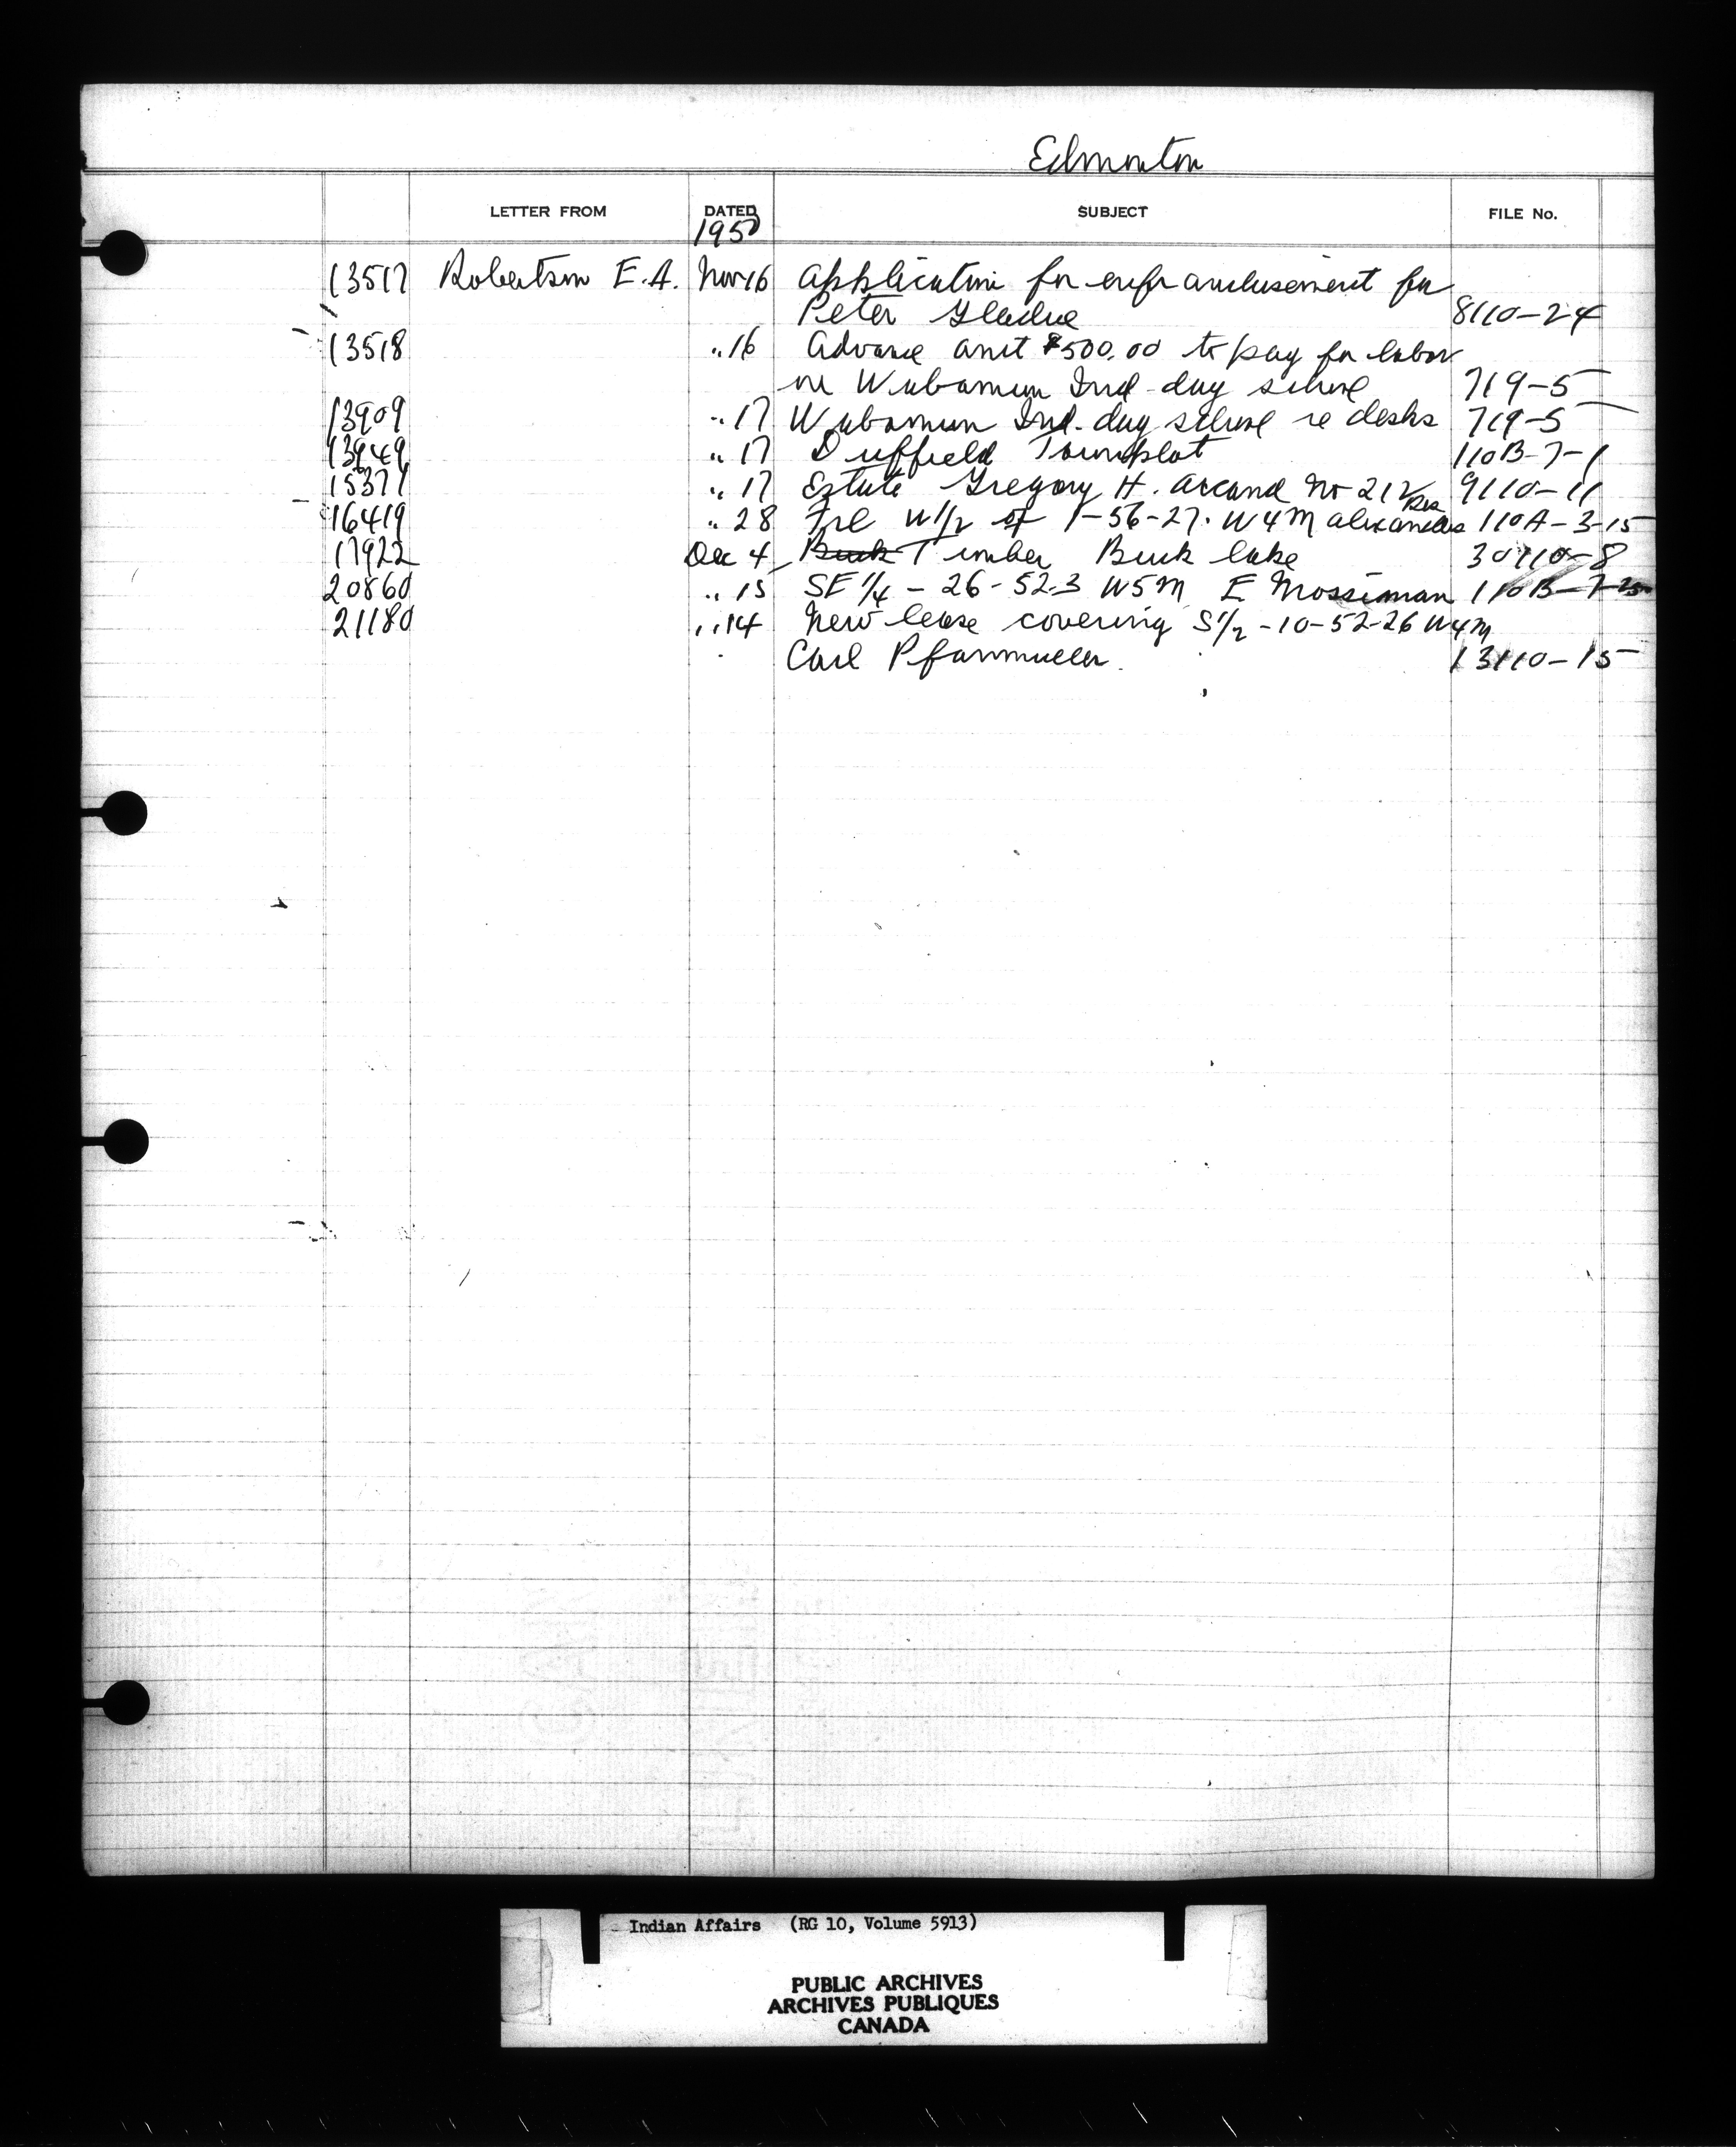 Edmonton
LETTER FROM DATED SUBJECT FILE No.
1950
13517 Robertson E.A. Nov 16 Application for enfranchisement for
Peter Gladue 8110-24
13518 " 16 Advance amt $500.00 to pay for labor
on Wabamun Ind. day school 719-5
13909 " 17 Wabamun Ind. day school re desks 719-5
13949 " 17 Duffield Townplot 110B-7-1
15371 " 17 Estate Gregory H. Arcand No 212 9110-11
16419 " 28 W 1/2 of 1-56-27. W4M Alexander Res 110A-3-15
17922 Dec 4 Buck Timber Buck lake 30110-8
20860 " 15 SE 1/4 - 26-52-3 W5M E Mossiman 110B-7-25
21180 " 14 New lease covering S1/2 -10-52-26 W4M
Carl Pfanmueller. 13110-15
Indian Affairs (RG 10, Volume 5913)
PUBLIC ARCHIVES
ARCHIVES PUBLIQUES
CANADA